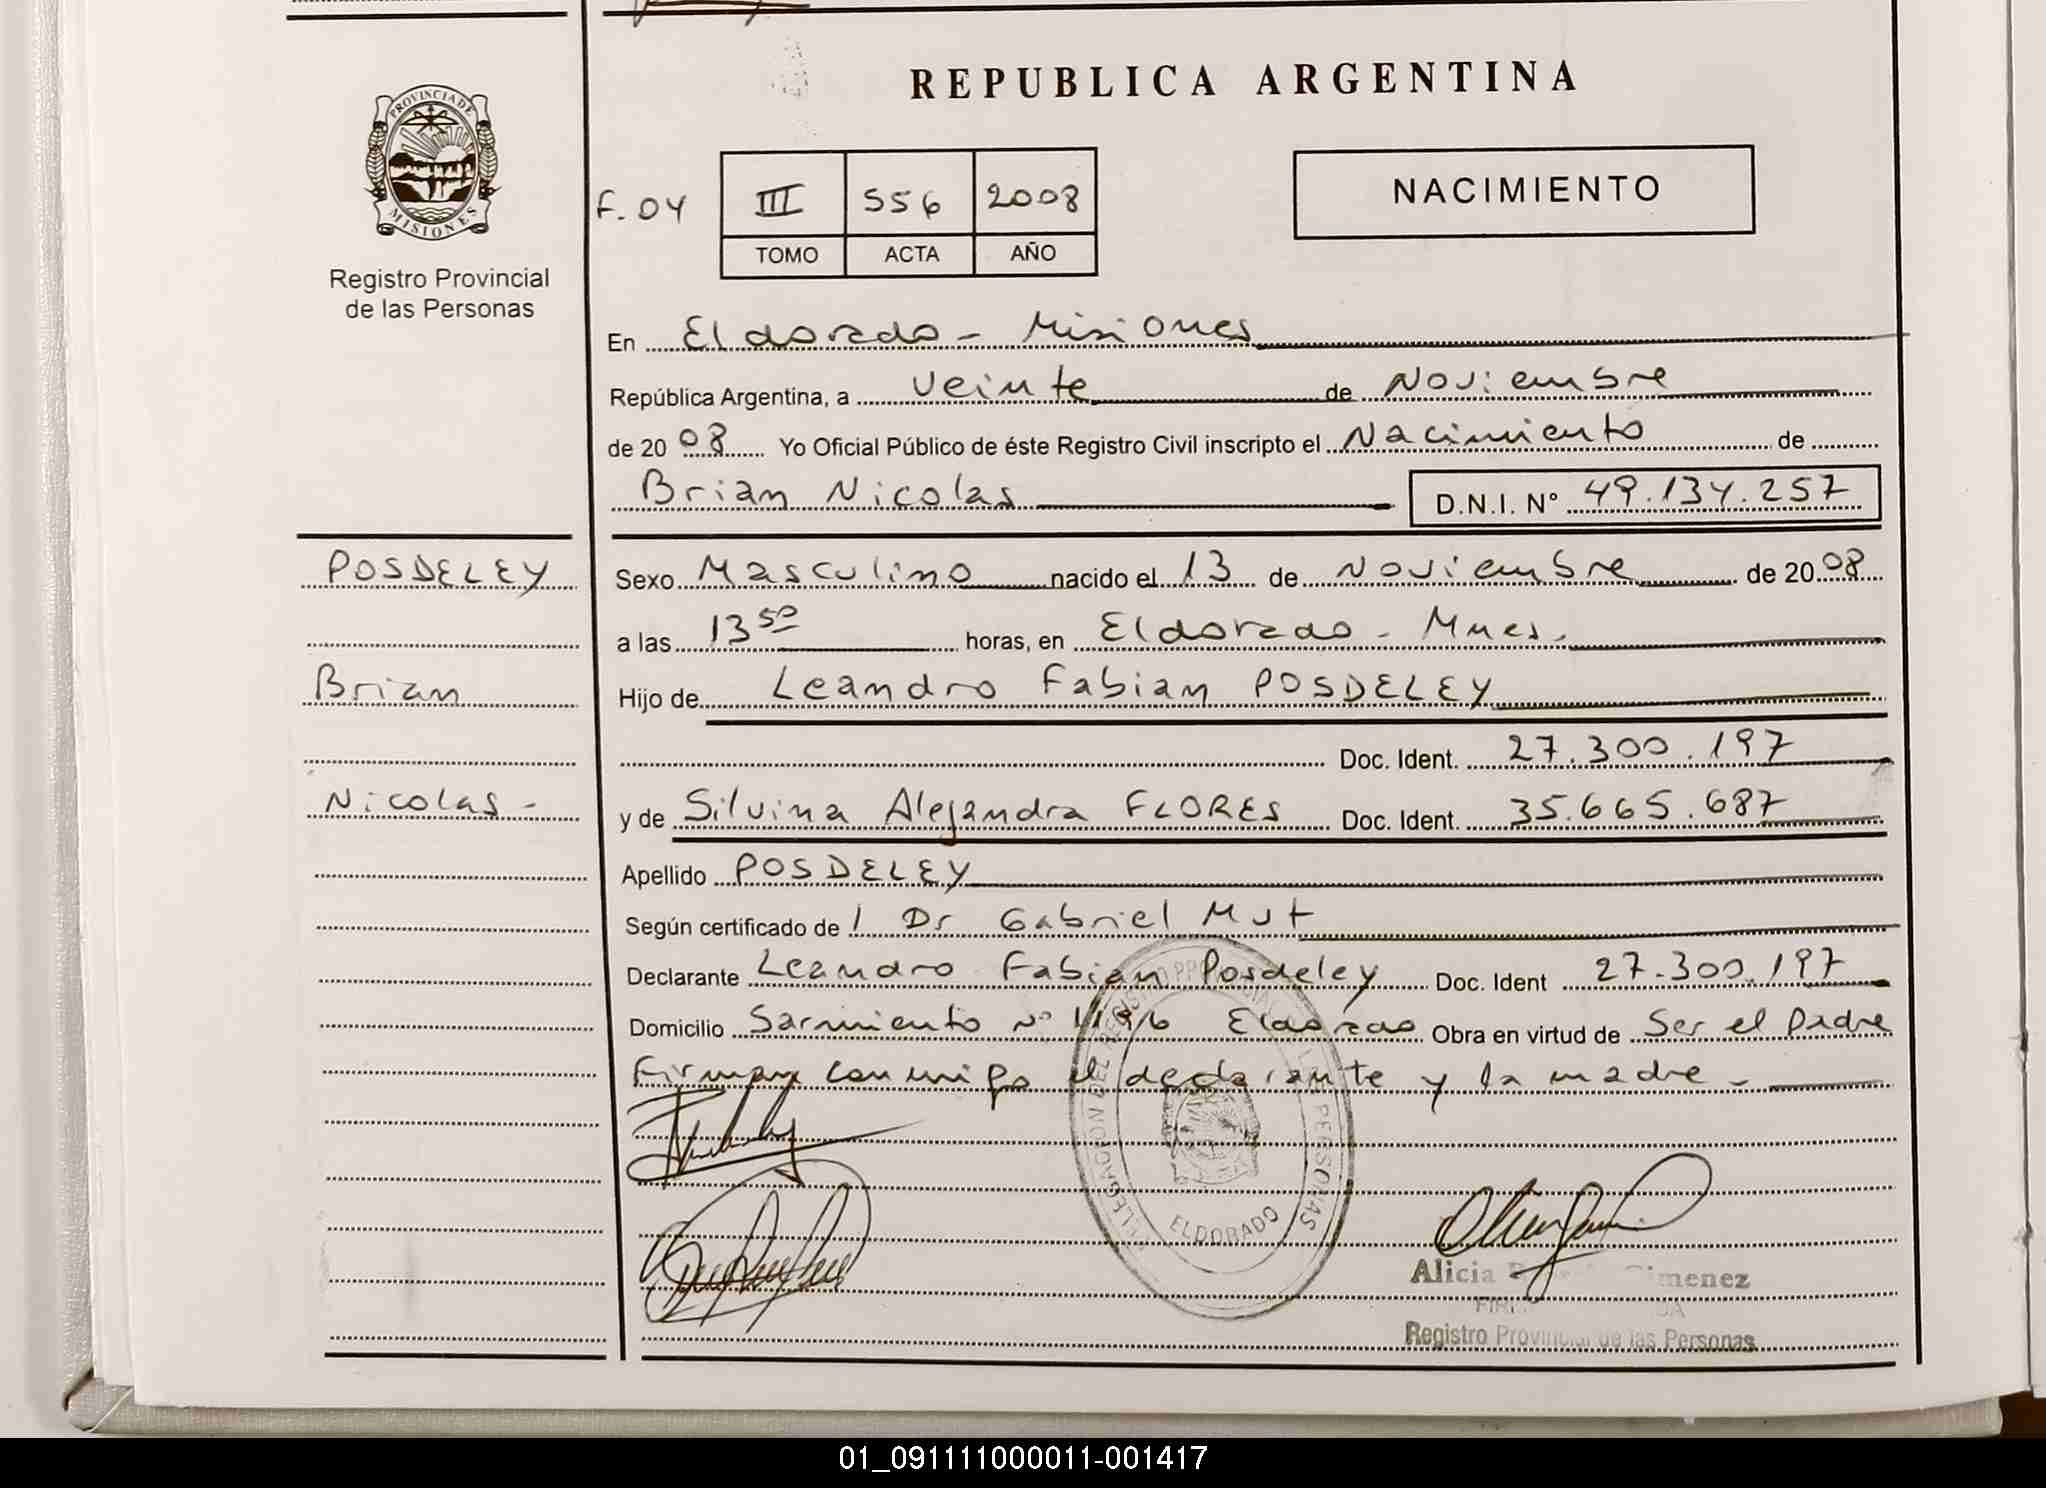 REPUBLICA ARGENTINA
PROVINCIA DE
MISIONES
Registro Provincial
de las Personas
F. 04
III 556 2008
TOMO ACTA AÑO
NACIMIENTO
En Eldorado - Misiones
República Argentina, a veinte de Noviembre
de 2008 Yo Oficial Público de éste Registro Civil inscripto el Nacimiento de
Brian Nicolas D.N.I. Nº 49.134.257
POSDELEY
Brian
Nicolas -
Sexo Masculino nacido el 13 de Noviembre de 2008
a las 13 50 horas, en Eldorado - Mnes.
Hijo de Leandro Fabian POSDELEY
Doc. Ident. 27.300.197
y de Silvina Alejandra FLORES Doc. Ident. 35.665.687
Apellido POSDELEY
Según certificado de / Dr Gabriel Mut
Declarante Leandro Fabian Posdeley Doc. Ident 27.300.197
Domicilio Sarmiento Nº Eldorado Obra en virtud de Ser el padre
Firman conmigo el declarante y la madre -
DELEGACION DEL REGISTRO PROVINCIAL DE LAS PERSONAS
ELDORADO
Alicia Gimenez
Registro Provincial de las Personas
01_091111000011-001417